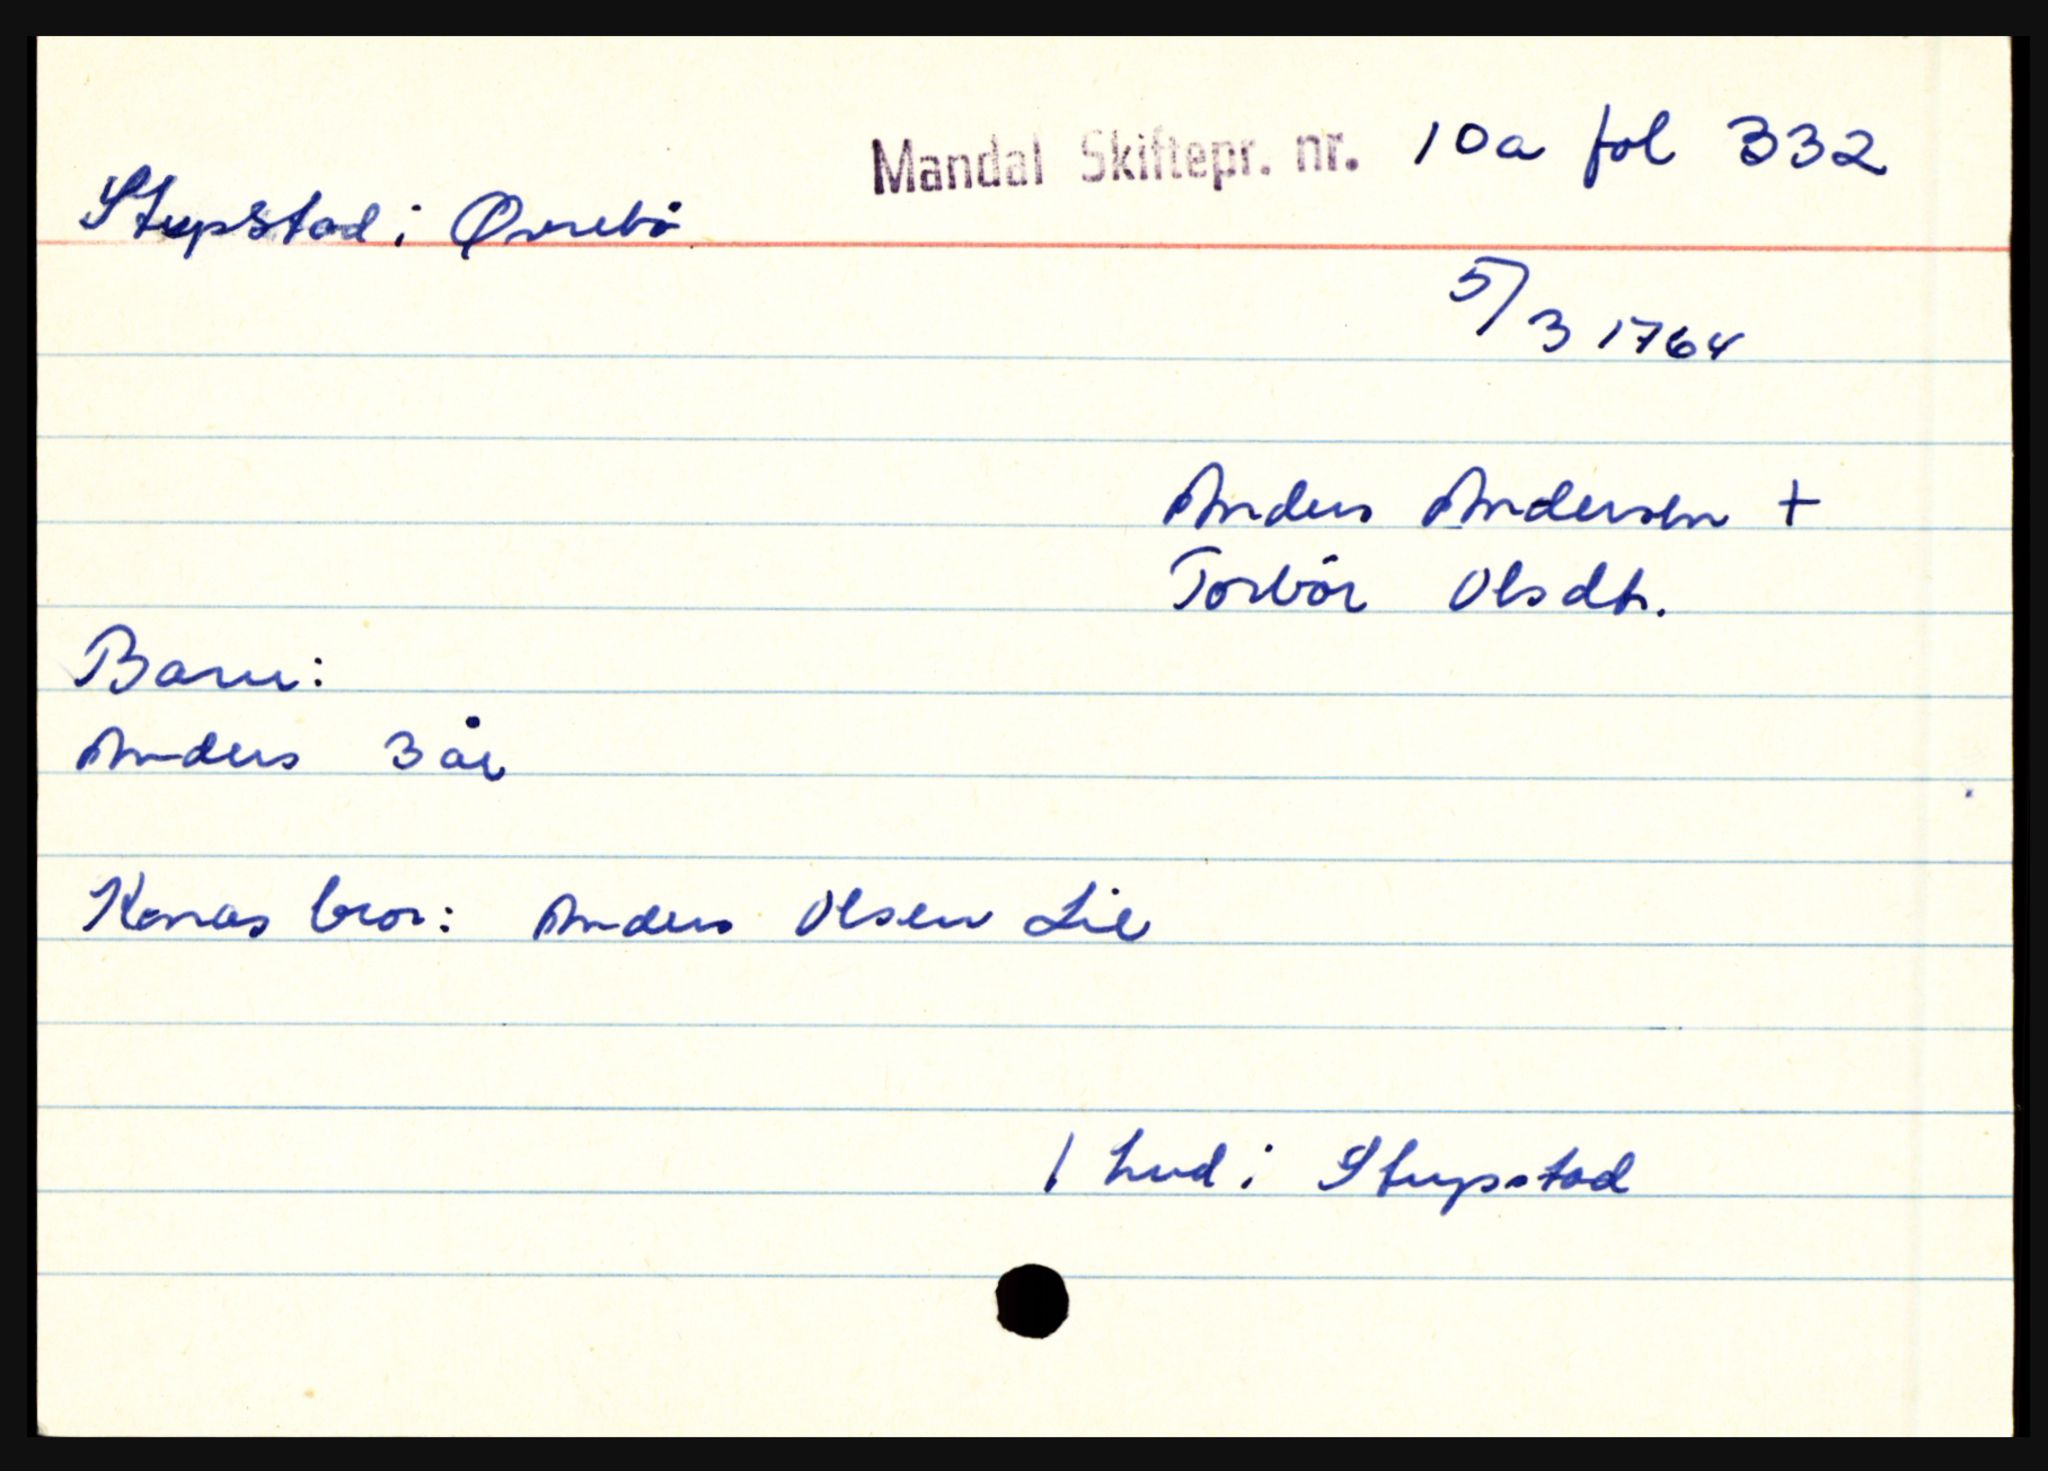 Mandal Skiftepr. nr. 10a fol 332
Stupstad i Øvrebö
5/3 1764
Anders Andersen +
Torbör Olsdtr.
Barn:
Anders 3 år
Konas bror: Anders Olsen Lie
1 hud i Stupstad